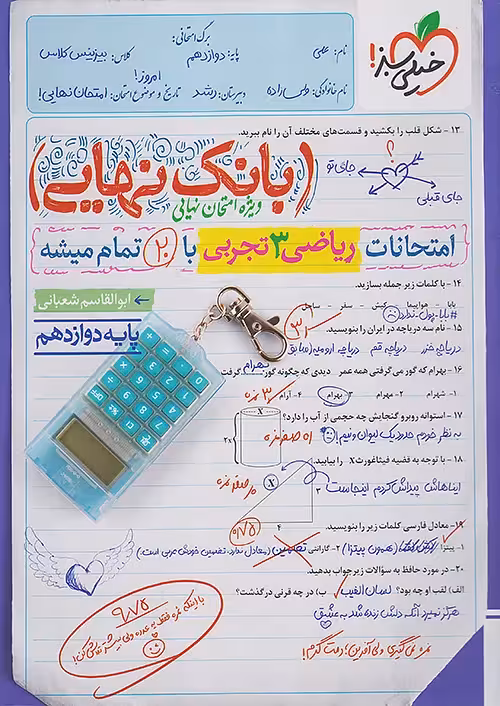 خیلی سبز!
برگ امتحانی:
نام: علی
پایه: دوازدهم
کلاس: بیزینس کلاس
نام خانوادگی:
دبیرستان: رشد
تاریخ و موضوع امتحان: امروز! امتحان نهایی!
۱۳ - شکل قلب را بکشید و قسمت‌های مختلف آن را نام ببرید.
جای تو
جای قبلی
(بانک نهایی)
ویژه امتحان نهایی
امتحانات ریاضی ۳ تجربی با ۲۰ تمام میشه
۱۴ - با کلمات زیر جمله بسازید.
بابا - هواپیما - کیش - سفر - ساحل
#بابا-پول-نداره
ابوالقاسم شعبانی
پایه دوازدهم
۱۵ - نام سه دریاچه در ایران را بنویسید.
دریاچه خزر دریاچه قم دریاچه ارومیه (سابق)
۱۶ - بهرام که گور می‌گرفتی همه عمر دیدی که چگونه گور بهرام گرفت
۱- شهرام ۲- مهرام ۳- بهرام ۴- آرام
۱۷ - استوانه روبرو گنجایش چه حجمی از آب را دارد؟
به نظر خودم حدود یک لیوان و نیم!
X
2X
۱۸ - با توجه به قضیه فیثاغورث X را بیابید.
ایناهاش پیداش کردم اینجاست
X
۳
۴
۱۹ - معادل فارسی کلمات زیر را بنویسید.
۱- پیتزا (همون پیتزا) ۲- گارانتی تضمین (معادل ندارد، تضمین خودش عربی است)
۲۰ - در مورد حافظ به سؤالات زیر جواب بدهید.
الف) لقب او چه بود؟ لسان الغیب ب) در چه قرنی درگذشت؟
هرگز نمیرد آنکه دلش زنده شد به عشق
نمره نمی‌گیری ولی آفرین؛ دمت گرم!
۹/۷۵